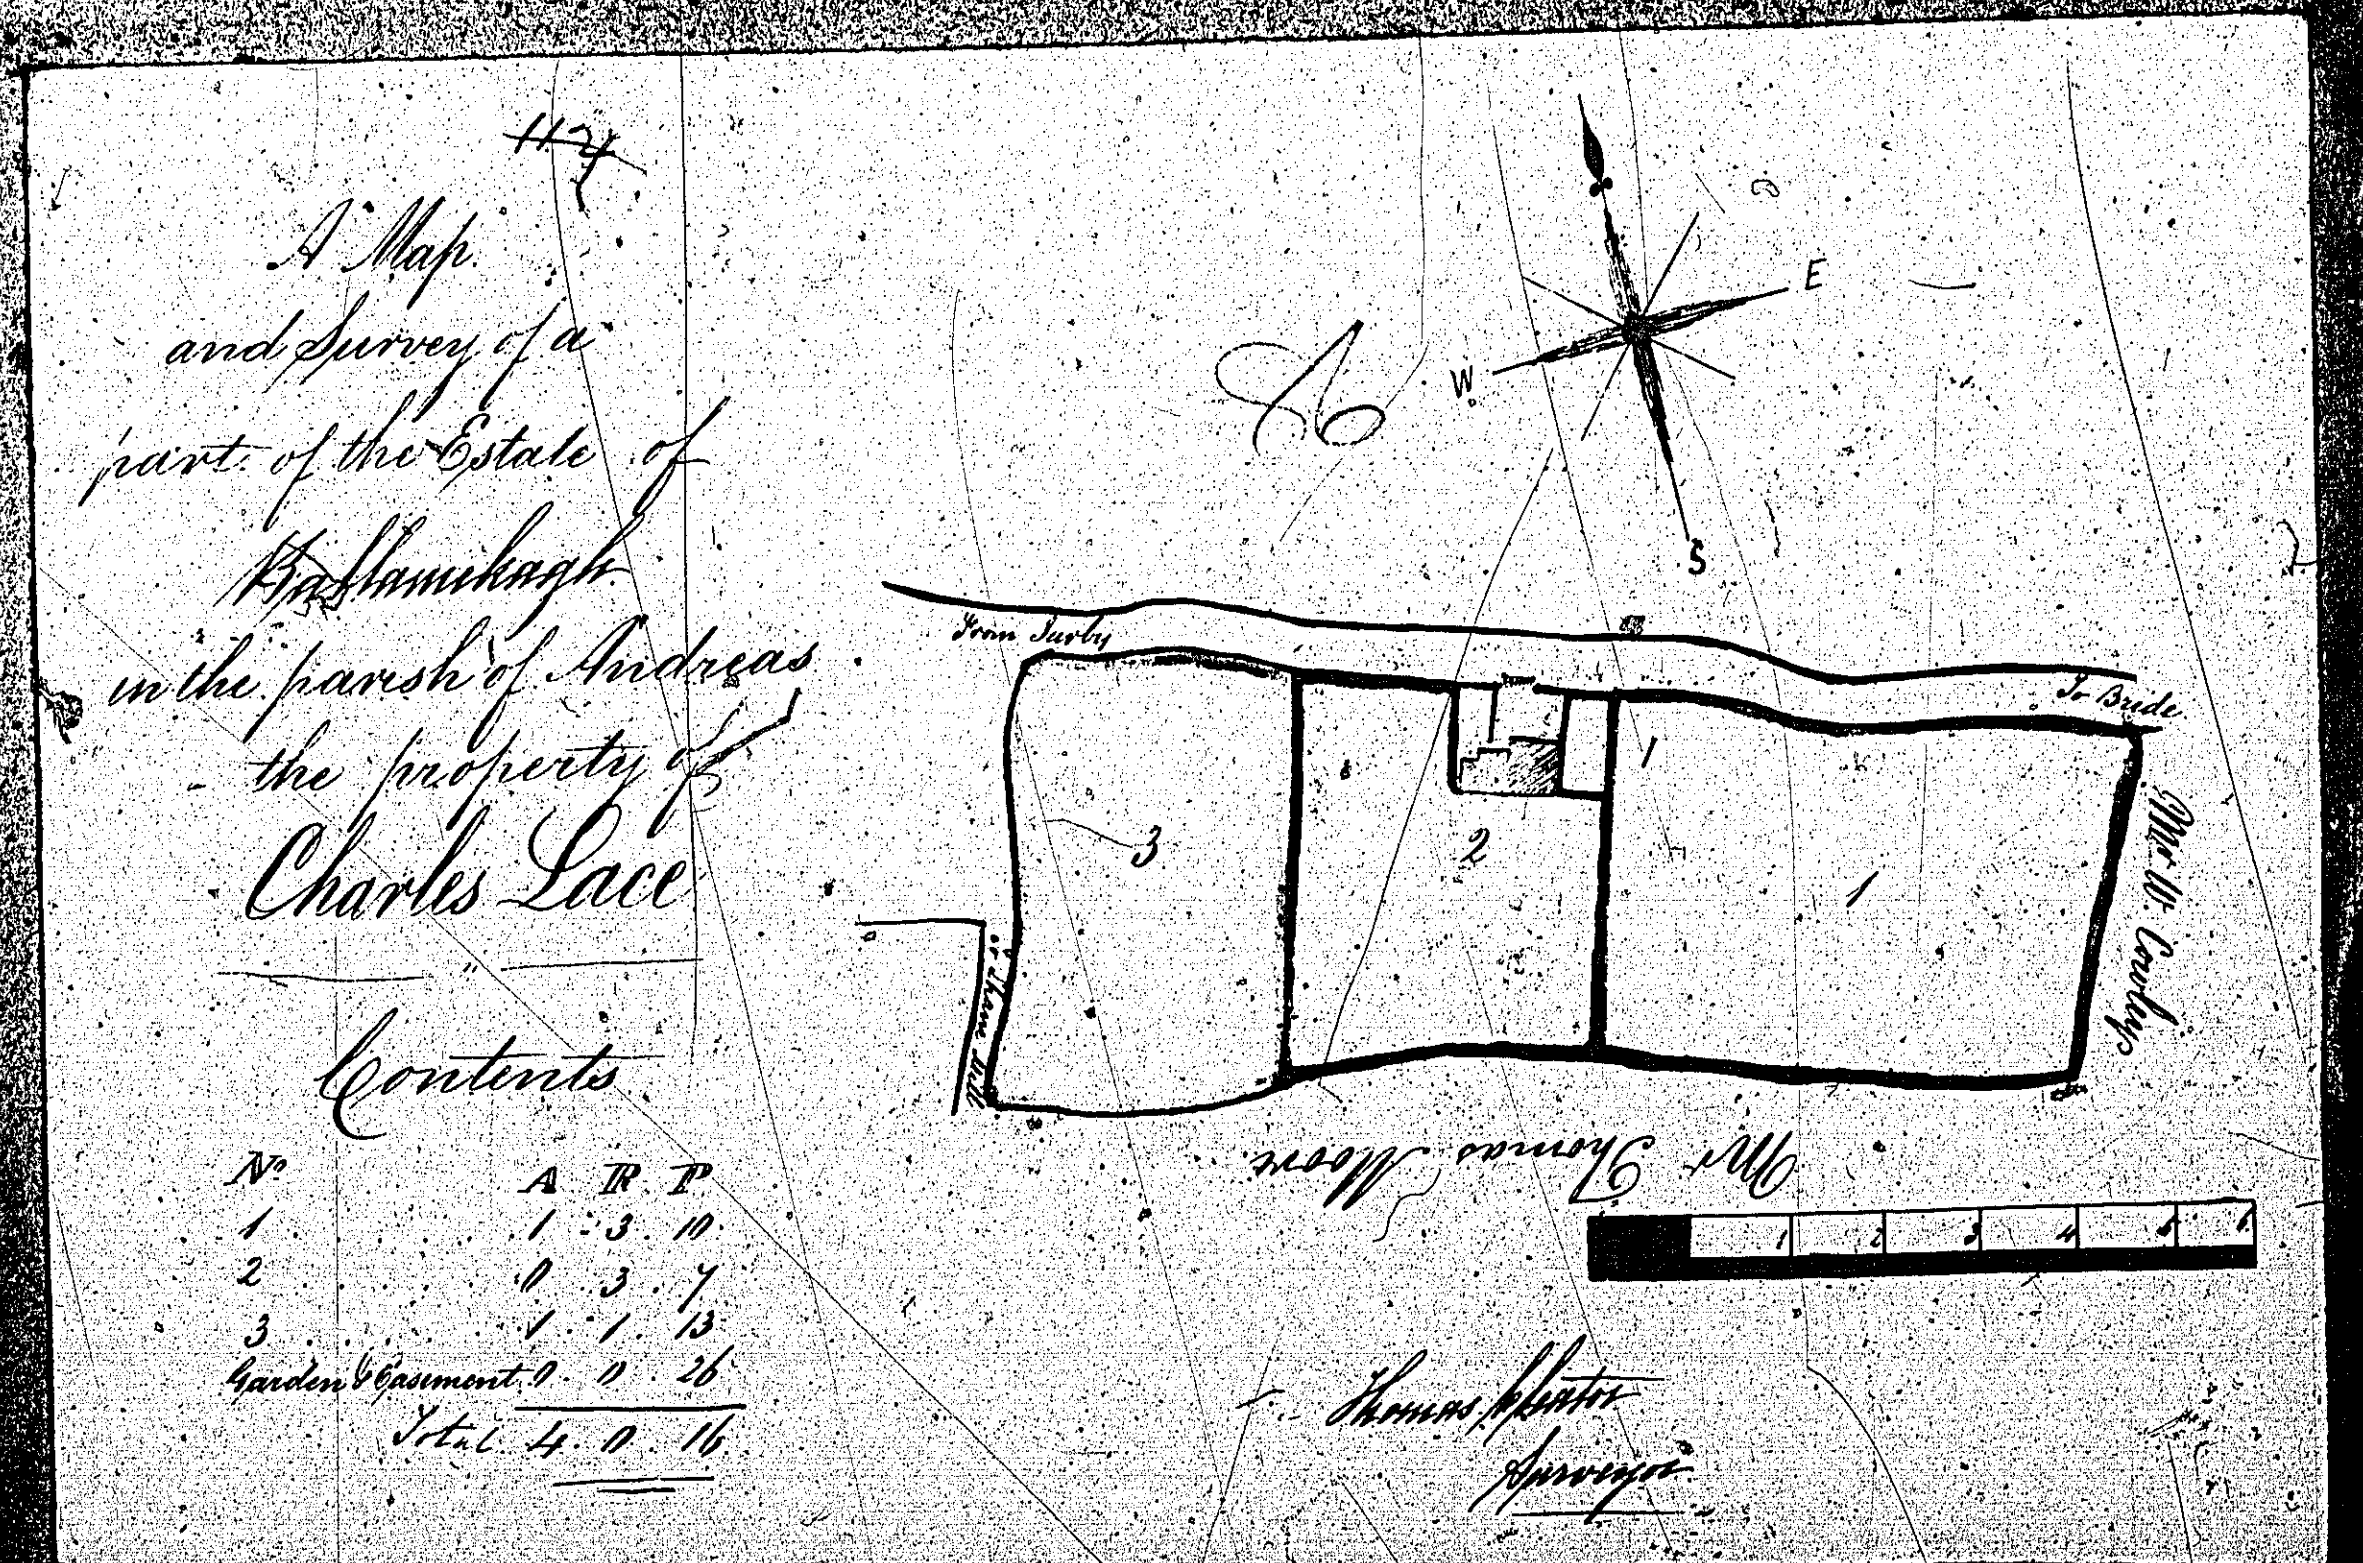 A Map
and Survey of a
part of the Estate of
in the parish of Andreas
the property of
Charles Lace
Contents
No A R P
1 1 3 10
2 0 3 7
3 1 1 13
Garden & Easement 0 0 26
Total 4 0 16
E
W
S
From Jurby
To Bride
1
3
2
1
Mr W. Cowley
Mr Thomas Moore
1 2 3 4 5 6
Thomas
Surveyor